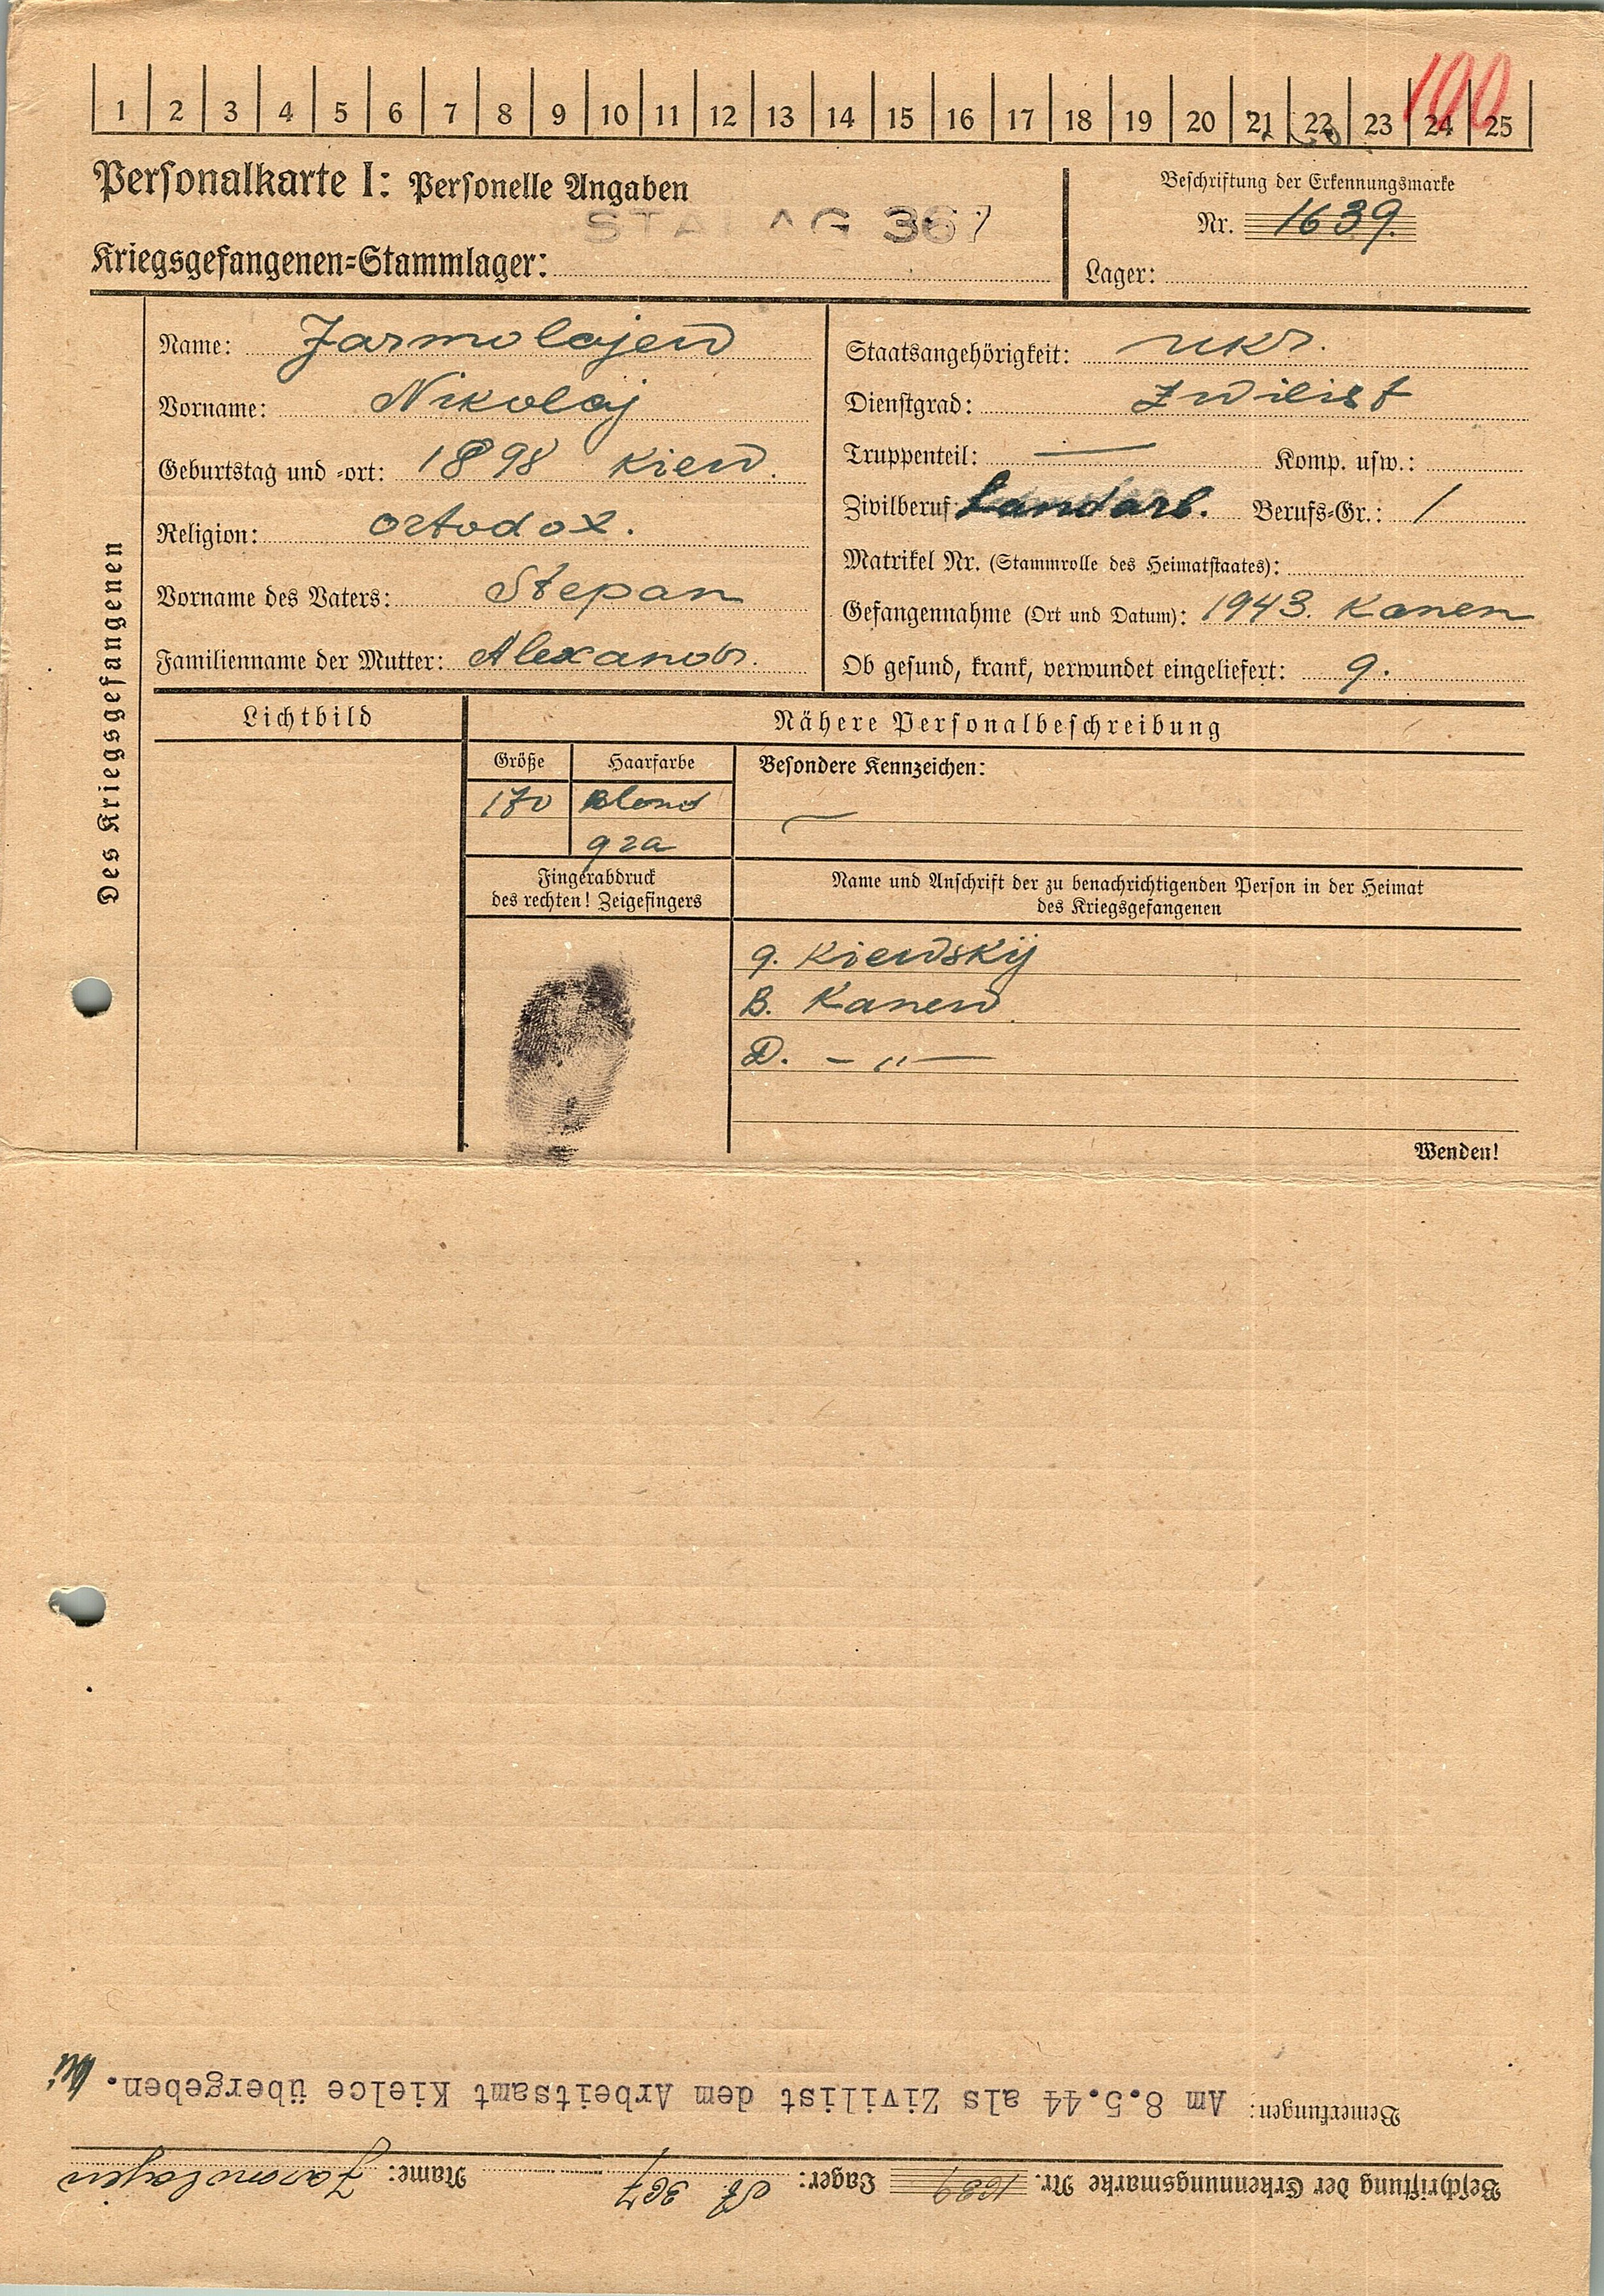 190
1 2 3 4 5 6 7 8 9 10 11 12 13 14 15 16 17 18 19 20 21 22 23 24 25
Personalkarte I: Personelle Angaben
STALAG 367
Kriegsgefangenen=Stammlager:
Beschriftung der Erkennungsmarke
Nr. 1639.
Lager:
Des Kriegsgefangenen
Name: Jarmolajew
Vorname: Nikolaj
Geburtstag und =ort: 1898 Kiew.
Religion: ortodox.
Vorname des Vaters: Stepan
Familienname der Mutter: Alexandr.
Staatsangehörigkeit: ukr.
Dienstgrad: Zwilist
Truppenteil: — Komp. usw.:
Zivilberuf: Landarb. Berufs=Gr.: 1
Matrikel Nr. (Stammrolle des Heimatstaates):
Gefangennahme (Ort und Datum): 1943. Kanew
Ob gesund, krank, verwundet eingeliefert: g.
Lichtbild
Nähere Personalbeschreibung
Größe Haarfarbe Besondere Kennzeichen:
170 Blond —
gra
Fingerabdruck
des rechten! Zeigefingers
Name und Anschrift der zu benachrichtigenden Person in der Heimat
des Kriegsgefangenen
g. Kiewskij
B. Kanew
D. - " -
Wenden!
Beschriftung der Erkennungsmarke Nr. 1639 Lager: St. 367 Name: Jaromolajew
Bemerkungen: Am 8.5.44 als Zivilist dem Arbeitsamt Kielce übergeben.